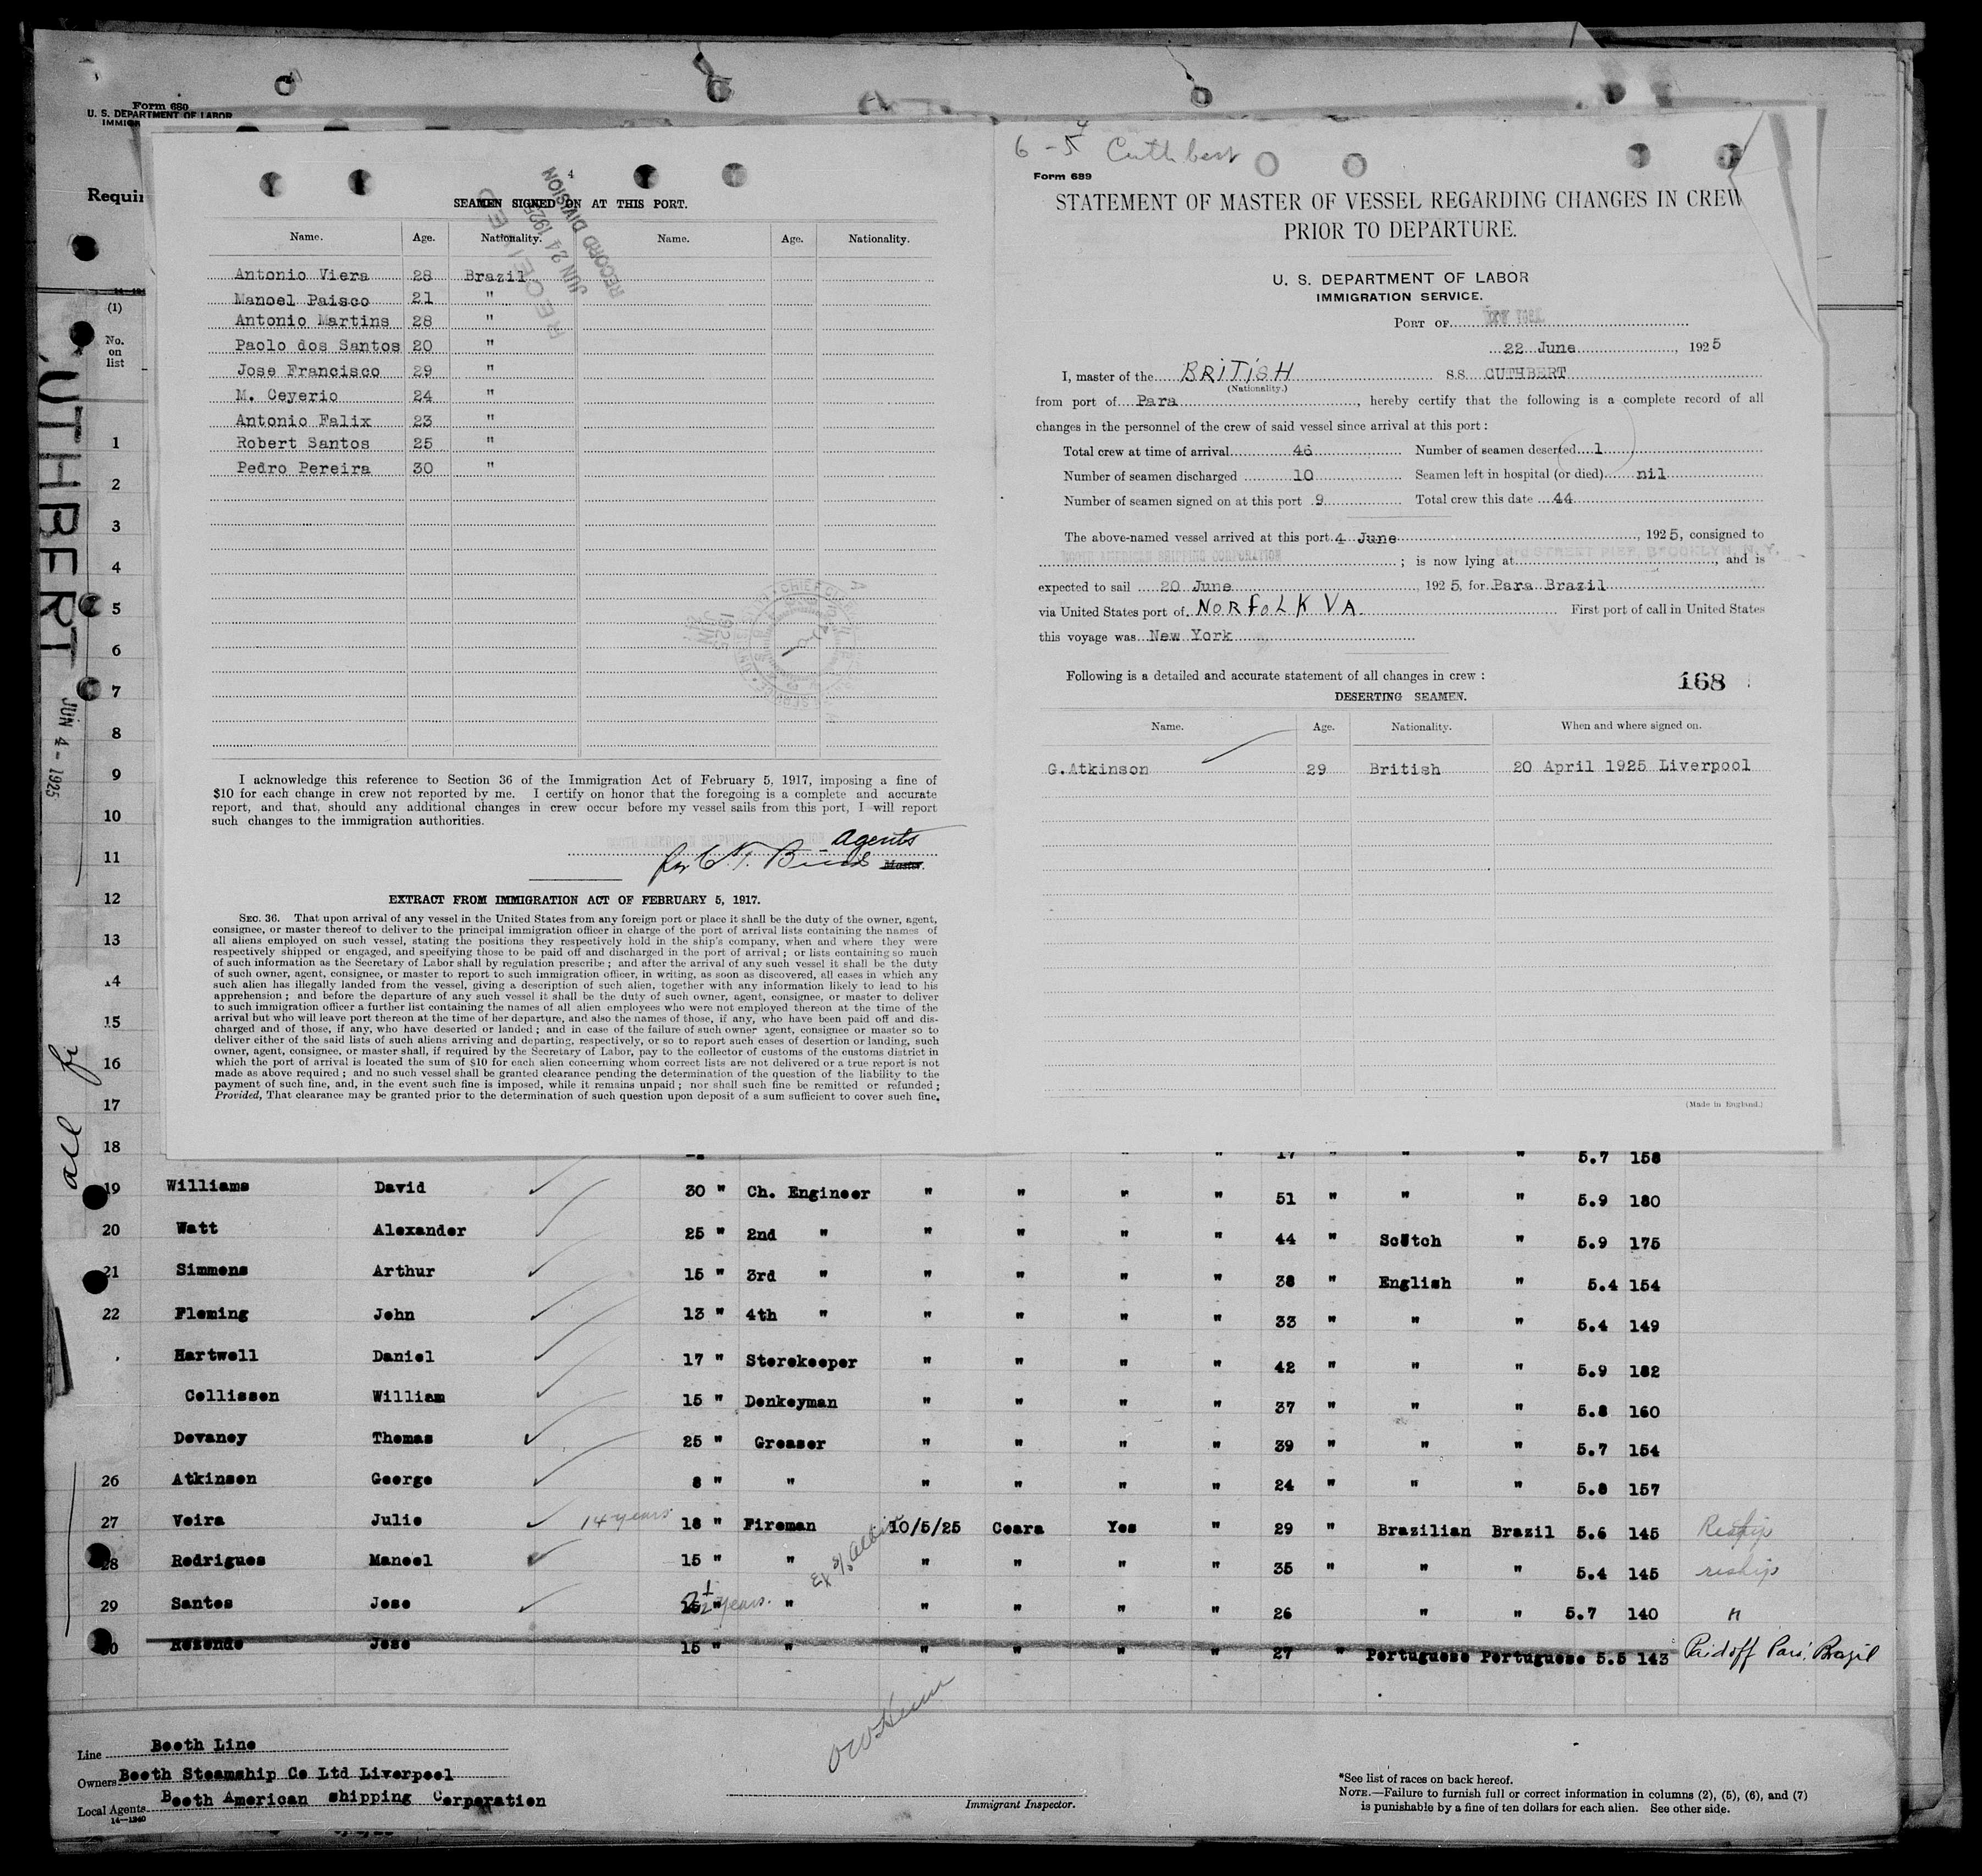 Form 680
U. S. DEPARTMENT OF LABOR
IMMIGR
Requir
(1)
No.
on
list
CUTHBERT
JUN 4 - 1925
4
SEAMEN SIGNED ON AT THIS PORT.
RECEIVED
JUN 24 1925
RECORD DIVISION
Name. Age. Nationality. Name. Age. Nationality.
Antonio Viera 28 Brazil
Manoel Paisco 21 "
Antonio Martins 28 "
Paolo dos Santos 20 "
Jose Francisco 29 "
M. Ceyerio 24 "
Antonio Falix 23 "
Robert Santos 25 "
Pedro Pereira 30 "
I acknowledge this reference to Section 36 of the Immigration Act of February 5, 1917, imposing a fine of
$10 for each change in crew not reported by me. I certify on honor that the foregoing is a complete and accurate
report, and that, should any additional changes in crew occur before my vessel sails from this port, I will report
such changes to the immigration authorities.
agents
for Master.
EXTRACT FROM IMMIGRATION ACT OF FEBRUARY 5, 1917.
SEC. 36. That upon arrival of any vessel in the United States from any foreign port or place it shall be the duty of the owner, agent,
consignee, or master thereof to deliver to the principal immigration officer in charge of the port of arrival lists containing the names of
all aliens employed on such vessel, stating the positions they respectively hold in the ship's company, when and where they were
respectively shipped or engaged, and specifying those to be paid off and discharged in the port of arrival; or lists containing so much
of such information as the Secretary of Labor shall by regulation prescribe; and after the arrival of any such vessel it shall be the duty
of such owner, agent, consignee, or master to report to such immigration officer, in writing, as soon as discovered, all cases in which any
such alien has illegally landed from the vessel, giving a description of such alien, together with any information likely to lead to his
apprehension; and before the departure of any such vessel it shall be the duty of such owner, agent, consignee, or master to deliver
to such immigration officer a further list containing the names of all alien employees who were not employed thereon at the time of the
arrival but who will leave port thereon at the time of her departure, and also the names of those, if any, who have been paid off and dis-
charged and of those, if any, who have deserted or landed; and in case of the failure of such owner agent, consignee or master so to
deliver either of the said lists of such aliens arriving and departing, respectively, or so to report such cases of desertion or landing, such
owner, agent, consignee, or master shall, if required by the Secretary of Labor, pay to the collector of customs of the customs district in
which the port of arrival is located the sum of $10 for each alien concerning whom correct lists are not delivered or a true report is not
made as above required; and no such vessel shall be granted clearance pending the determination of the question of the liability to the
payment of such fine, and, in the event such fine is imposed, while it remains unpaid; nor shall such fine be remitted or refunded;
Provided, That clearance may be granted prior to the determination of such question upon deposit of a sum sufficient to cover such fine,
6-5 4 Cuthbert
Form 689
STATEMENT OF MASTER OF VESSEL REGARDING CHANGES IN CREW
PRIOR TO DEPARTURE.
U. S. DEPARTMENT OF LABOR
IMMIGRATION SERVICE.
PORT OF NEW YORK
22 June, 1925
I, master of the BRITISH SS CUTHBERT
(Nationality.)
from port of Para, hereby certify that the following is a complete record of all
changes in the personnel of the crew of said vessel since arrival at this port:
Total crew at time of arrival 46 Number of seamen deserted 1
Number of seamen discharged 10 Seamen left in hospital (or died) nil
Number of seamen signed on at this port 9 Total crew this date 44
The above-named vessel arrived at this port 4 June, 1925, consigned to
BOOTH AMERICAN SHIPPING CORPORATION; is now lying at STREET PIER, BROOKLYN, N. Y., and is
expected to sail 20 June, 1925, for Para Brazil
via United States port of NORFOLK VA. First port of call in United States
this voyage was New York
Following is a detailed and accurate statement of all changes in crew: 168
DESERTING SEAMEN.
Name. Age. Nationality. When and where signed on.
G. Atkinson 29 British 20 April 1925 Liverpool
(Made in England.)
1
2
3
4
5
6
7
8
9
10
11
12
13
14
15
16
17
18 17 " " " 5.7 158
19 Williams David 30 " Ch. Engineer " " " " 51 " " " 5.9 180
20 Watt Alexander 25 " 2nd " " " " " 44 " Scotch " 5.9 175
21 Simmons Arthur 15 " 3rd " " " " " 38 " English " 5.4 154
22 Fleming John 13 " 4th " " " " " 33 " " " 5.4 149
Hartwell Daniel 17 " Storekeeper " " " " 42 " " " 5.9 182
Collisson William 15 " Donkeyman " " " " 37 " " " 5.8 160
Devaney Thomas 25 " Greaser " " " " 39 " " " 5.7 154
26 Atkinson George 8 " " " " " " 24 " " " 5.8 157
27 Veira Julio 14 years 18 " Fireman 10/5/25 Ceara Yes " 29 " Brazilian Brazil 5.6 145 Reship
28 Rodrigues Manoel 15 " " " " " " 35 " " " 5.4 145 reship
29 Santos Jose 2½ years. " " " " " 26 " " 5.7 140 "
30 Rezende Jose 15 " " " " " " 27 " Portuguese Portuguese 5.5 143 Paidoff Para, Brazil
Line Booth Line
Owners Booth Steamship Co Ltd Liverpool
Local Agents Booth American shipping Corporation
14—1240
Immigrant Inspector.
*See list of races on back hereof.
NOTE.—Failure to furnish full or correct information in columns (2), (5), (6), and (7)
is punishable by a fine of ten dollars for each alien. See other side.